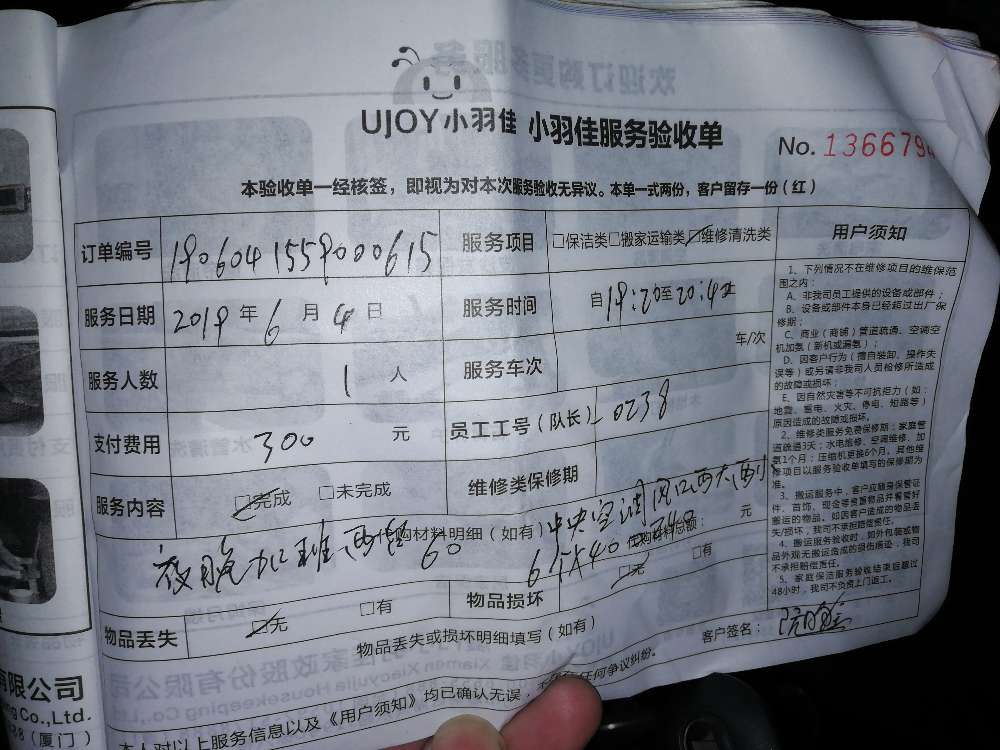 UJOY小羽佳 小羽佳服务验收单
No. 136679
本验收单一经核签，即视为对本次服务验收无异议。本单一式两份，客户留存一份（红）
订单编号 1906041559000615 服务项目 □保洁类□搬家运输类☑维修清洗类
服务日期 2019 年 6 月 4 日 服务时间 自19:20至20:42
服务人数 1 人 服务车次 车/次
支付费用 300 元 员工工号（队长） 0238
服务内容 ☑完成 □未完成 维修类保修期
夜晚加班 60 购材料明细（如有） 中央空调风口 元
物品丢失 ☑无 □有 物品损坏 ☑无 □有
物品丢失或损坏明细填写（如有）
本人对以上服务信息以及《用户须知》均已确认无误，任何争议纠纷。
客户签名：
用户须知
1、下列情况不在维修项目的维保范
围之内：
A、非我司员工提供的设备或部件；
B、设备或部件本身已经超过出厂保
修期；
C、商业（商铺）管道疏通、空调空
机加氨（新机或漏氨）；
D、因客户行为（擅自装卸、操作失
误等）或另请非我司人员检修所造成
的故障或损坏；
E、因自然灾害等不可抗拒力（如：
地震、雷电、火灾、停电、短路等）
原因造成的故障或损坏。
2、维修类服务免费保修期：家庭管
道疏通3天；水电维修、空调维修、加
氨1个月；压缩机更换6个月，其他维
修项目以服务验收单填写的保修期为
准。
3、搬运服务中，客户应随身保管证
件、首饰、现金等贵重物品并看管好
搬运的物品。如因客户造成的物品丢
失/损坏，我司不承担赔偿责任。
4、搬运服务验收时，如外包装或物
品外观无搬运造成的损伤痕迹，我司
不承担赔偿责任。
5、家庭保洁服务验收结束后超过
48小时，我司不负责上门返工。
有限公司
ng Co.,Ltd.
（厦门）